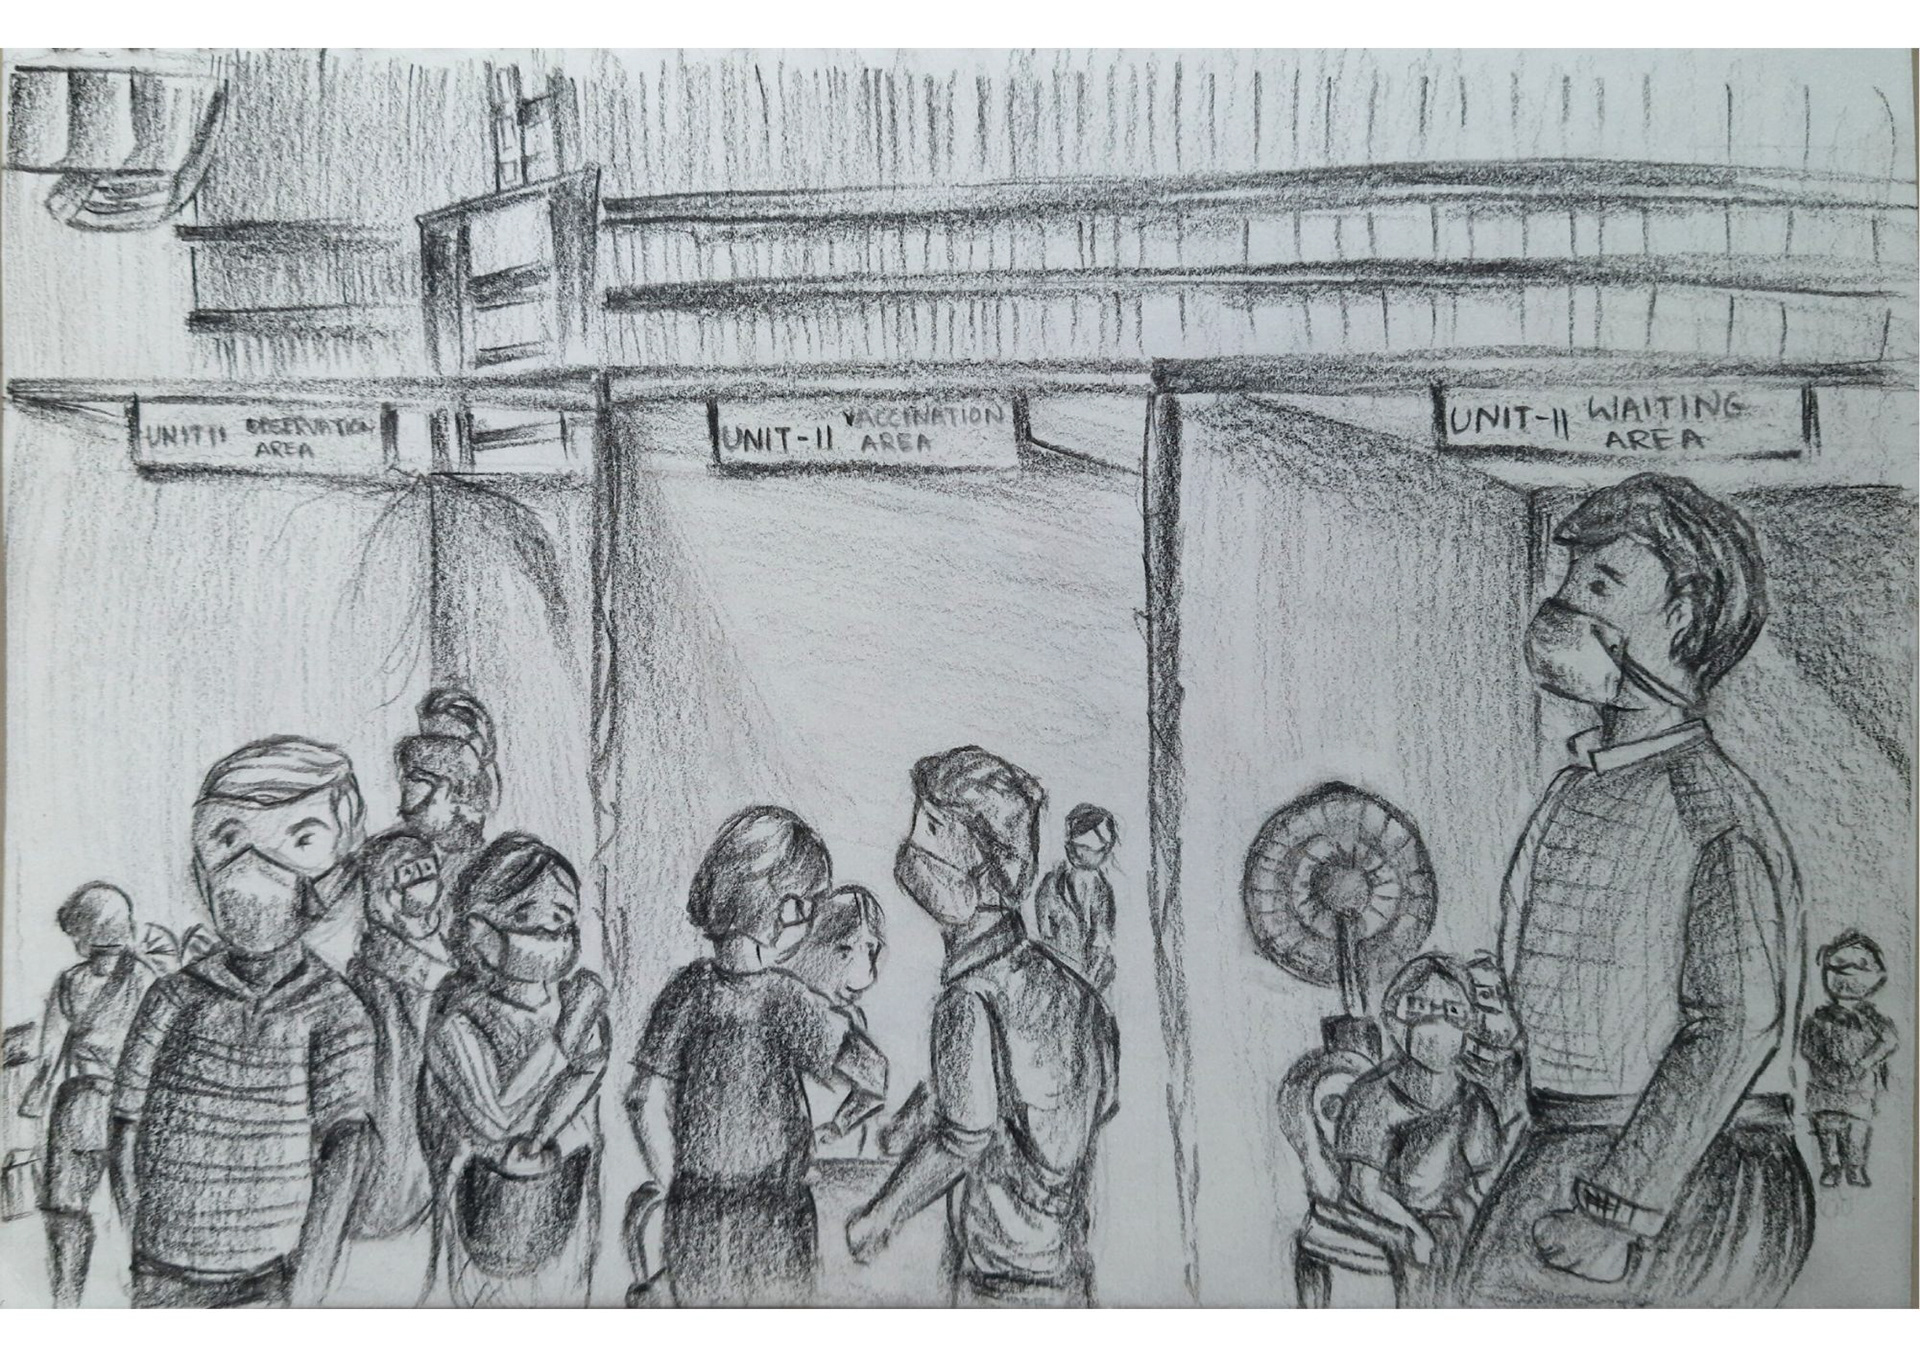 UNIT II OBSERVATION
AREA
UNIT-II VACCINATION
AREA
UNIT-II WAITING
AREA